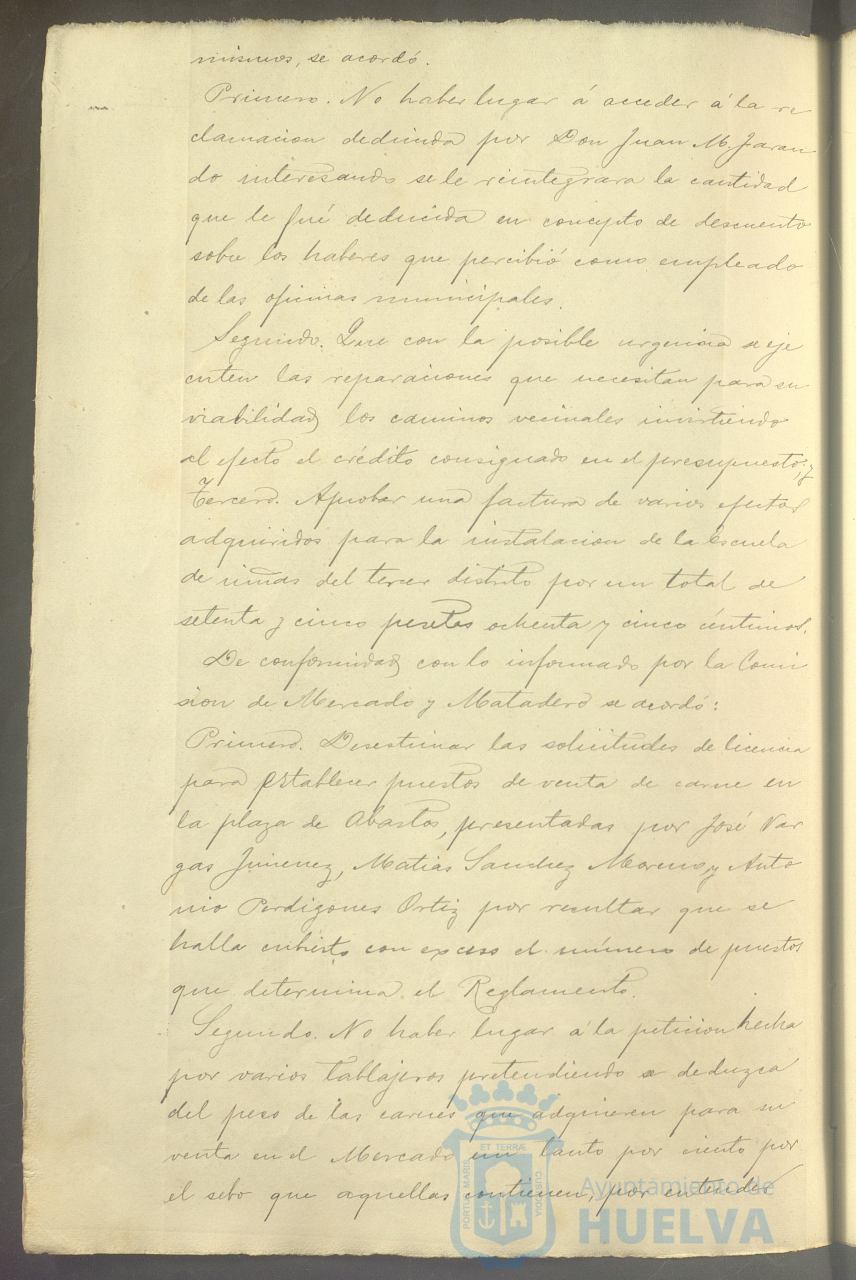 mismos, se acordó.
Primero. No haber lugar á acceder á la re
clamacion deducida por Don Juan M. Jaran
do interesando se le reintegrara la cantidad
que le fué deducida en concepto de descuento
sobre los haberes que percibió como empleado
de las oficinas municipales.
Segundo. Que con la posible urgencia se eje
cuten las reparaciones que necesitan para su
viabilidad los caminos vecinales invirtiendo
al efecto el crédito consignado en el presupuesto; y
Tercero. Aprobar una factura de varios efectos
adquiridos para la instalacion de la Escuela
de niñas del tercer distrito por un total de
setenta y cinco pesetas ochenta y cinco céntimos.
De conformidad con lo informado por la Comi
sion de Mercado y Matadero se acordó:
Primero. Desestimar las solicitudes de licencia
para establecer puestos de venta de carne en
la plaza de Abastos, presentadas por José Var
gas Jimenez, Matias Sanchez Moreno, y Anto
nio Perdigones Ortiz por resultar que se
halla cubierto con exceso el número de puestos
que determina el Reglamento.
Segundo. No haber lugar á la peticion hecha
por varios tablajeros pretendiendo se deduzca
del peso de las carnes que adquieren para su
venta en el Mercado un tanto por ciento por
el sebo que aquellas contienen, por entender
PORTUS MARIS ET TERRÆ CUSTODIA
Ayuntamiento de
HUELVA